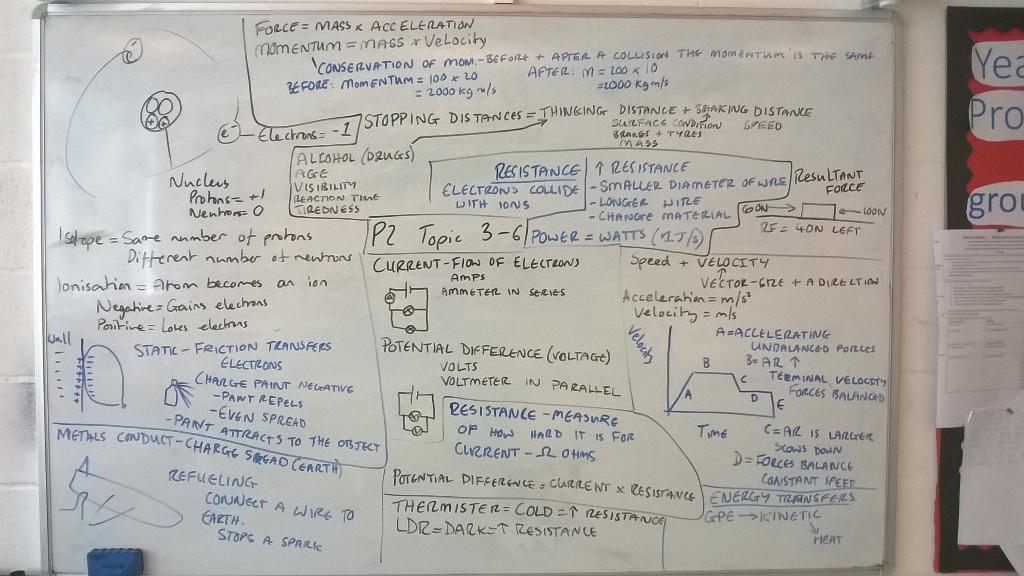 FORCE = MASS x ACCELERATION
MOMENTUM = MASS x VELOCITY
CONSERVATION OF MOM.- BEFORE + AFTER A COLLISION THE MOMENTUM IS THE SAME
BEFORE: MOMENTUM = 100 x 20
= 2000 kg m/s
AFTER: M = 200 x 10
= 2000 kg m/s
e-
e- Electrons = -1
STOPPING DISTANCES = THINKING DISTANCE + BREAKING DISTANCE
SURFACE CONDITION SPEED
BRAKES + TYRES
MASS
ALCOHOL (DRUGS)
AGE
VISIBILITY
REACTION TIME
TIREDNESS
Nucleus
Protons = +1
Neutron = 0
RESISTANCE
ELECTRONS COLLIDE
WITH IONS
↑ RESISTANCE
- SMALLER DIAMETER OF WIRE
- LONGER WIRE
- CHANGE MATERIAL
RESULTANT
FORCE
60N → ← 100N
RF = 40N LEFT
P2 Topic 3-6
POWER = WATTS (1J/s)
Isotope = Same number of protons
Different number of neutrons
Ionisation = Atom becomes an ion
Negative = Gains electrons
Positive = Loses electrons
Wall
STATIC - FRICTION TRANSFERS
ELECTRONS
CHARGE PAINT NEGATIVE
- PAINT REPELS
- EVEN SPREAD
- PAINT ATTRACTS TO THE OBJECT
METALS CONDUCT - CHARGE SPREAD (EARTH)
REFUELING
CONNECT A WIRE TO
EARTH.
STOPS A SPARK
CURRENT - FLOW OF ELECTRONS
AMPS
AMMETER IN SERIES
A
POTENTIAL DIFFERENCE (VOLTAGE)
VOLTS
VOLTMETER IN PARALLEL
V
RESISTANCE - MEASURE
OF HOW HARD IT IS FOR
CURRENT - Ω OHMS
POTENTIAL DIFFERENCE = CURRENT x RESISTANCE
THERMISTER = COLD = ↑ RESISTANCE
LDR = DARK = ↑ RESISTANCE
Speed + VELOCITY
VECTOR - SIZE + A DIRECTION
Acceleration = m/s²
Velocity = m/s
Velocity
A B C D E
Time
A = ACCELERATING
UNBALANCED FORCES
B = AR ↑
TERMINAL VELOCITY
FORCES BALANCED
C = AR IS LARGER
SLOWS DOWN
D = FORCES BALANCE
CONSTANT SPEED
ENERGY TRANSFERS.
GPE → KINETIC
HEAT
Yea
Pro
grou